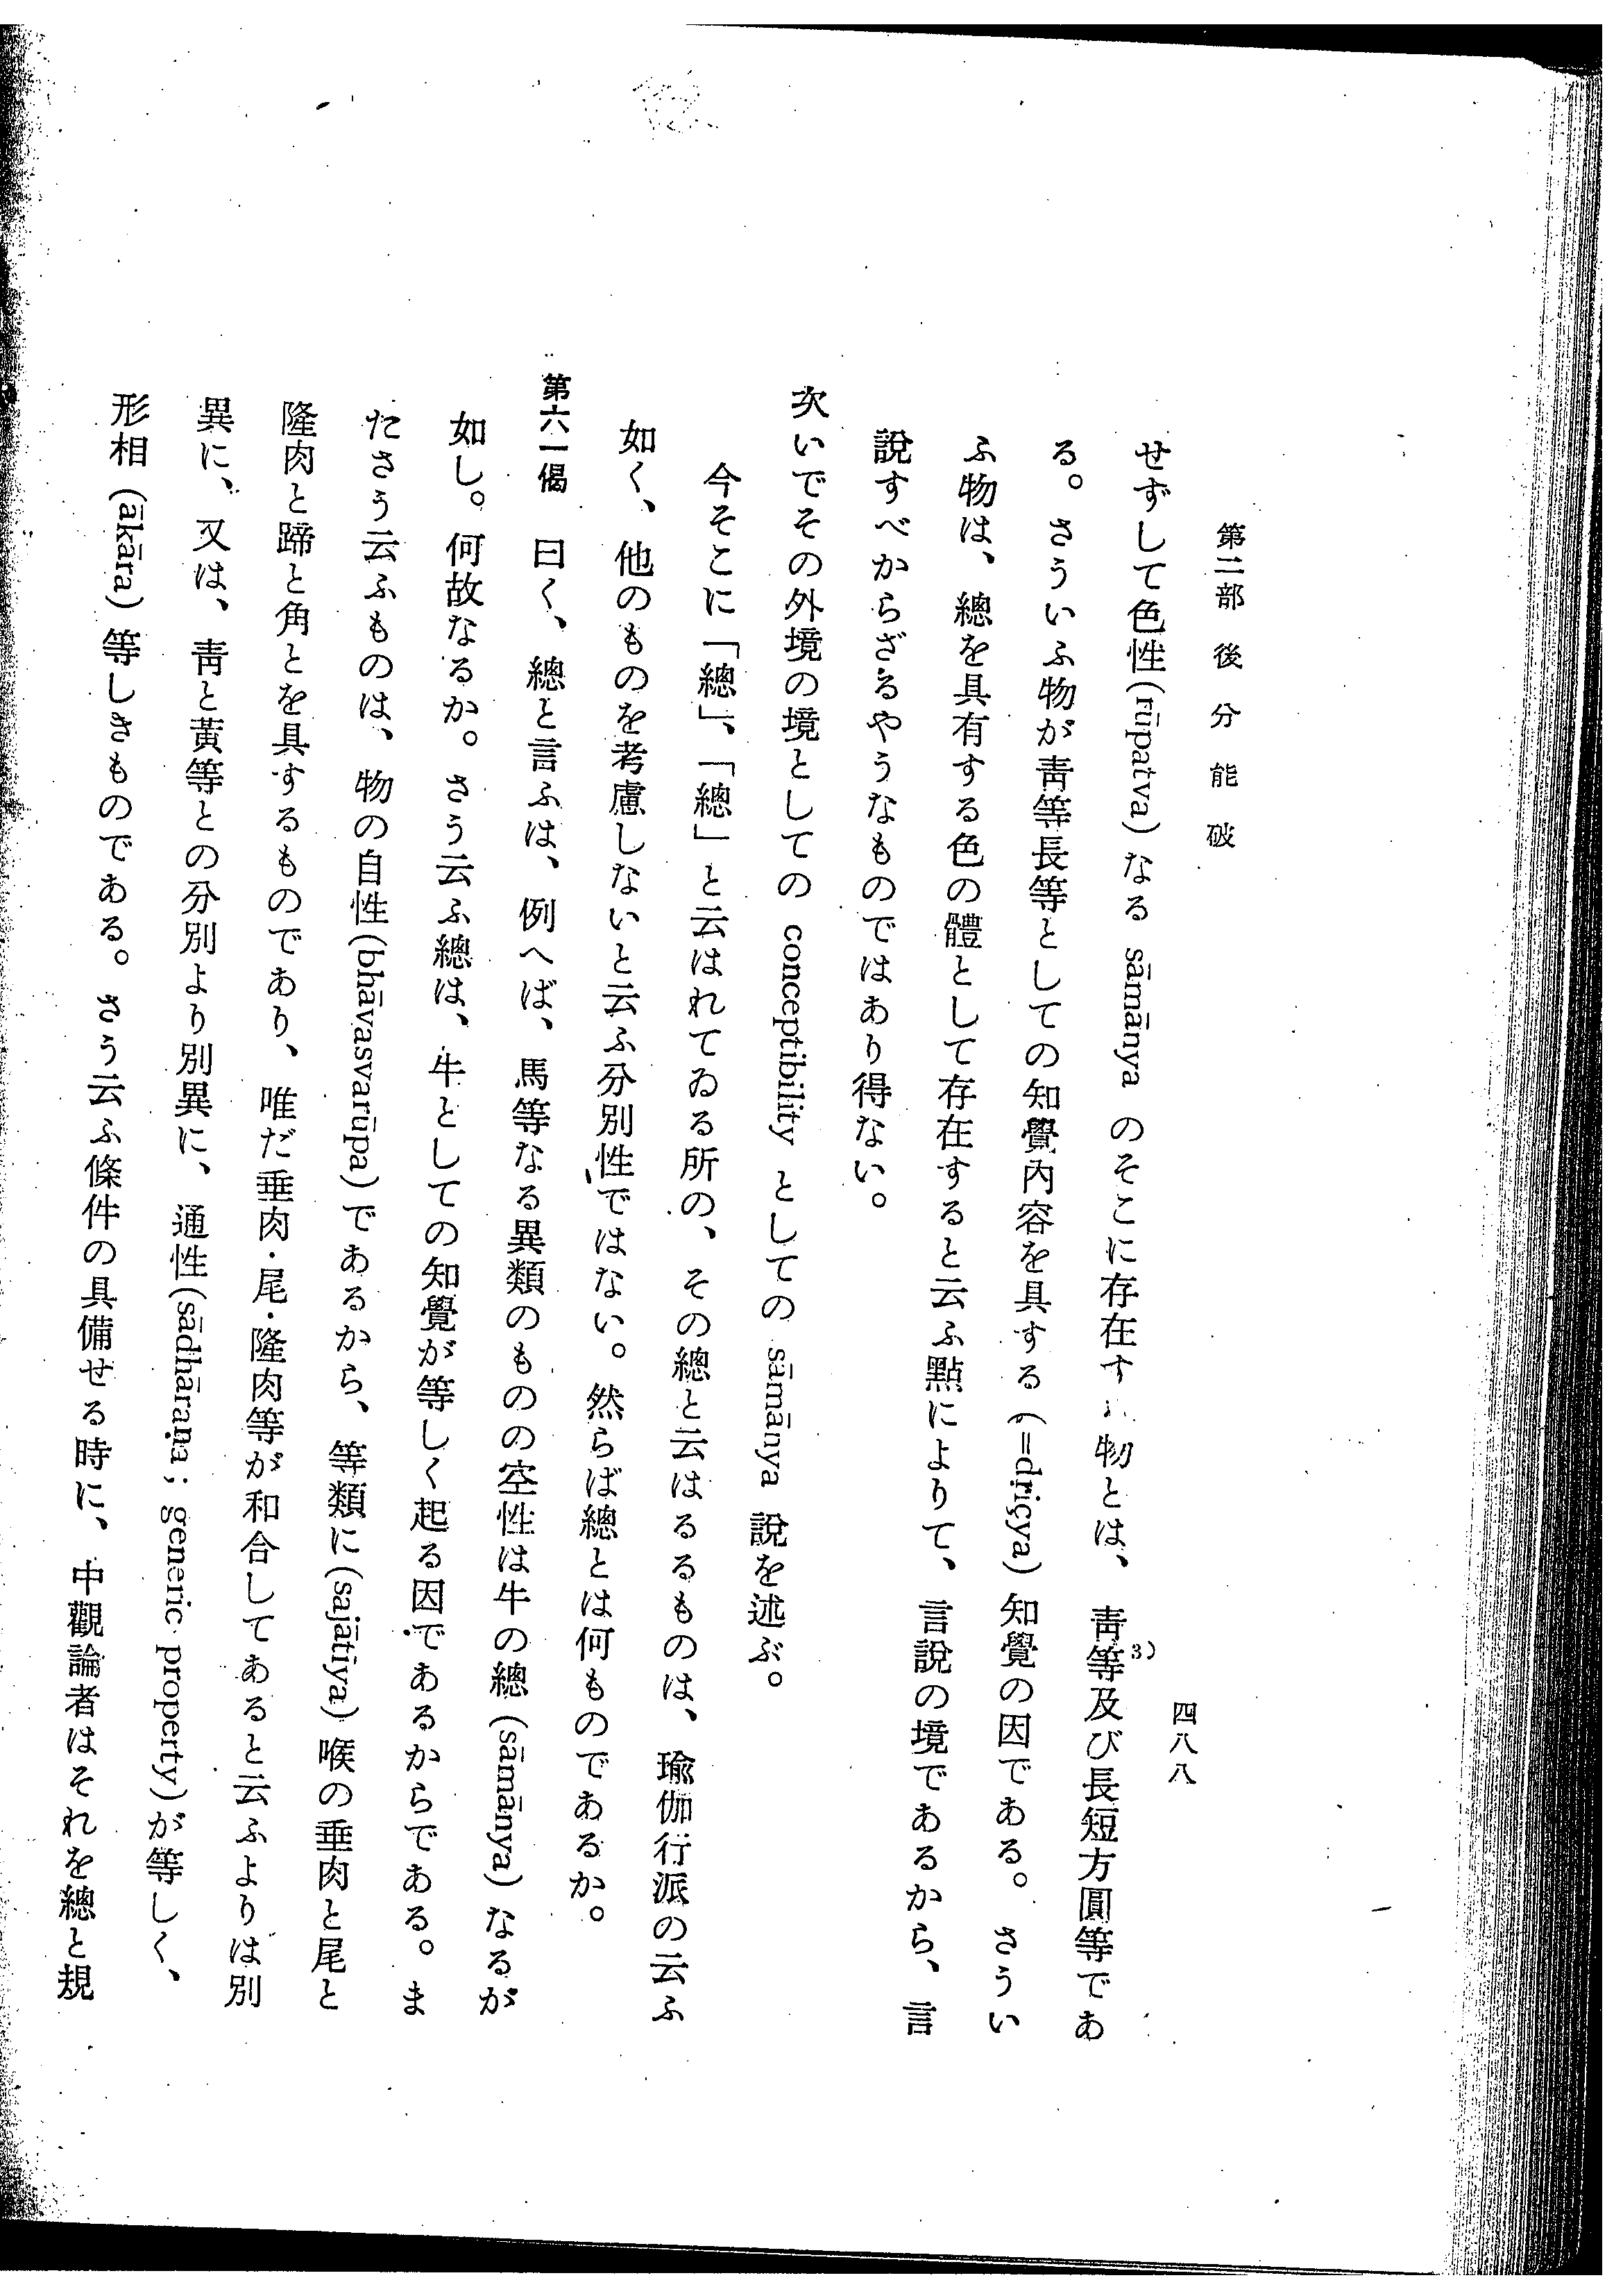 第二部 後分能破
四八八
せずして色性(rūpatva)なる sāmānya のそこに存在す 物とは、靑等3)及び長短方圓等であ
る。さういふ物が靑等長等としての知覺內容を具する(=dṛiçya)知覺の因である。さうい
ふ物は、總を具有する色の體として存在すると云ふ點によりて、言說の境であるから、言
說すべからざるやうなものではあり得ない。
次いでその外境の境としての conceptibility としての sāmānya 說を述ぶ。
今そこに「總」、「總」と云はれてゐる所の、その總と云はるるものは、瑜伽行派の云ふ
如く、他のものを考慮しないと云ふ分別性ではない。然らば總とは何ものであるか。
第六一偈 曰く、總と言ふは、例へば、馬等なる異類のものの空性は牛の總(sāmānya)なるが
如し。何故なるか。さう云ふ總は、牛としての知覺が等しく起る因であるからである。ま
たさう云ふものは、物の自性(bhāvasvarūpa)であるから、等類に(sajātīya)喉の垂肉と尾と
隆肉と蹄と角とを具するものであり、唯だ垂肉・尾・隆肉等が和合してあると云ふよりは別
異に、又は、靑と黃等との分別より別異に、通性(sādhāraṇa; generic property)が等しく、
形相(ākāra)等しきものである。さう云ふ條件の具備せる時に、中觀論者はそれを總と規